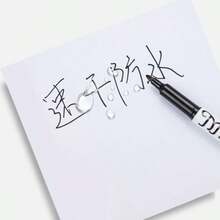 速干防水